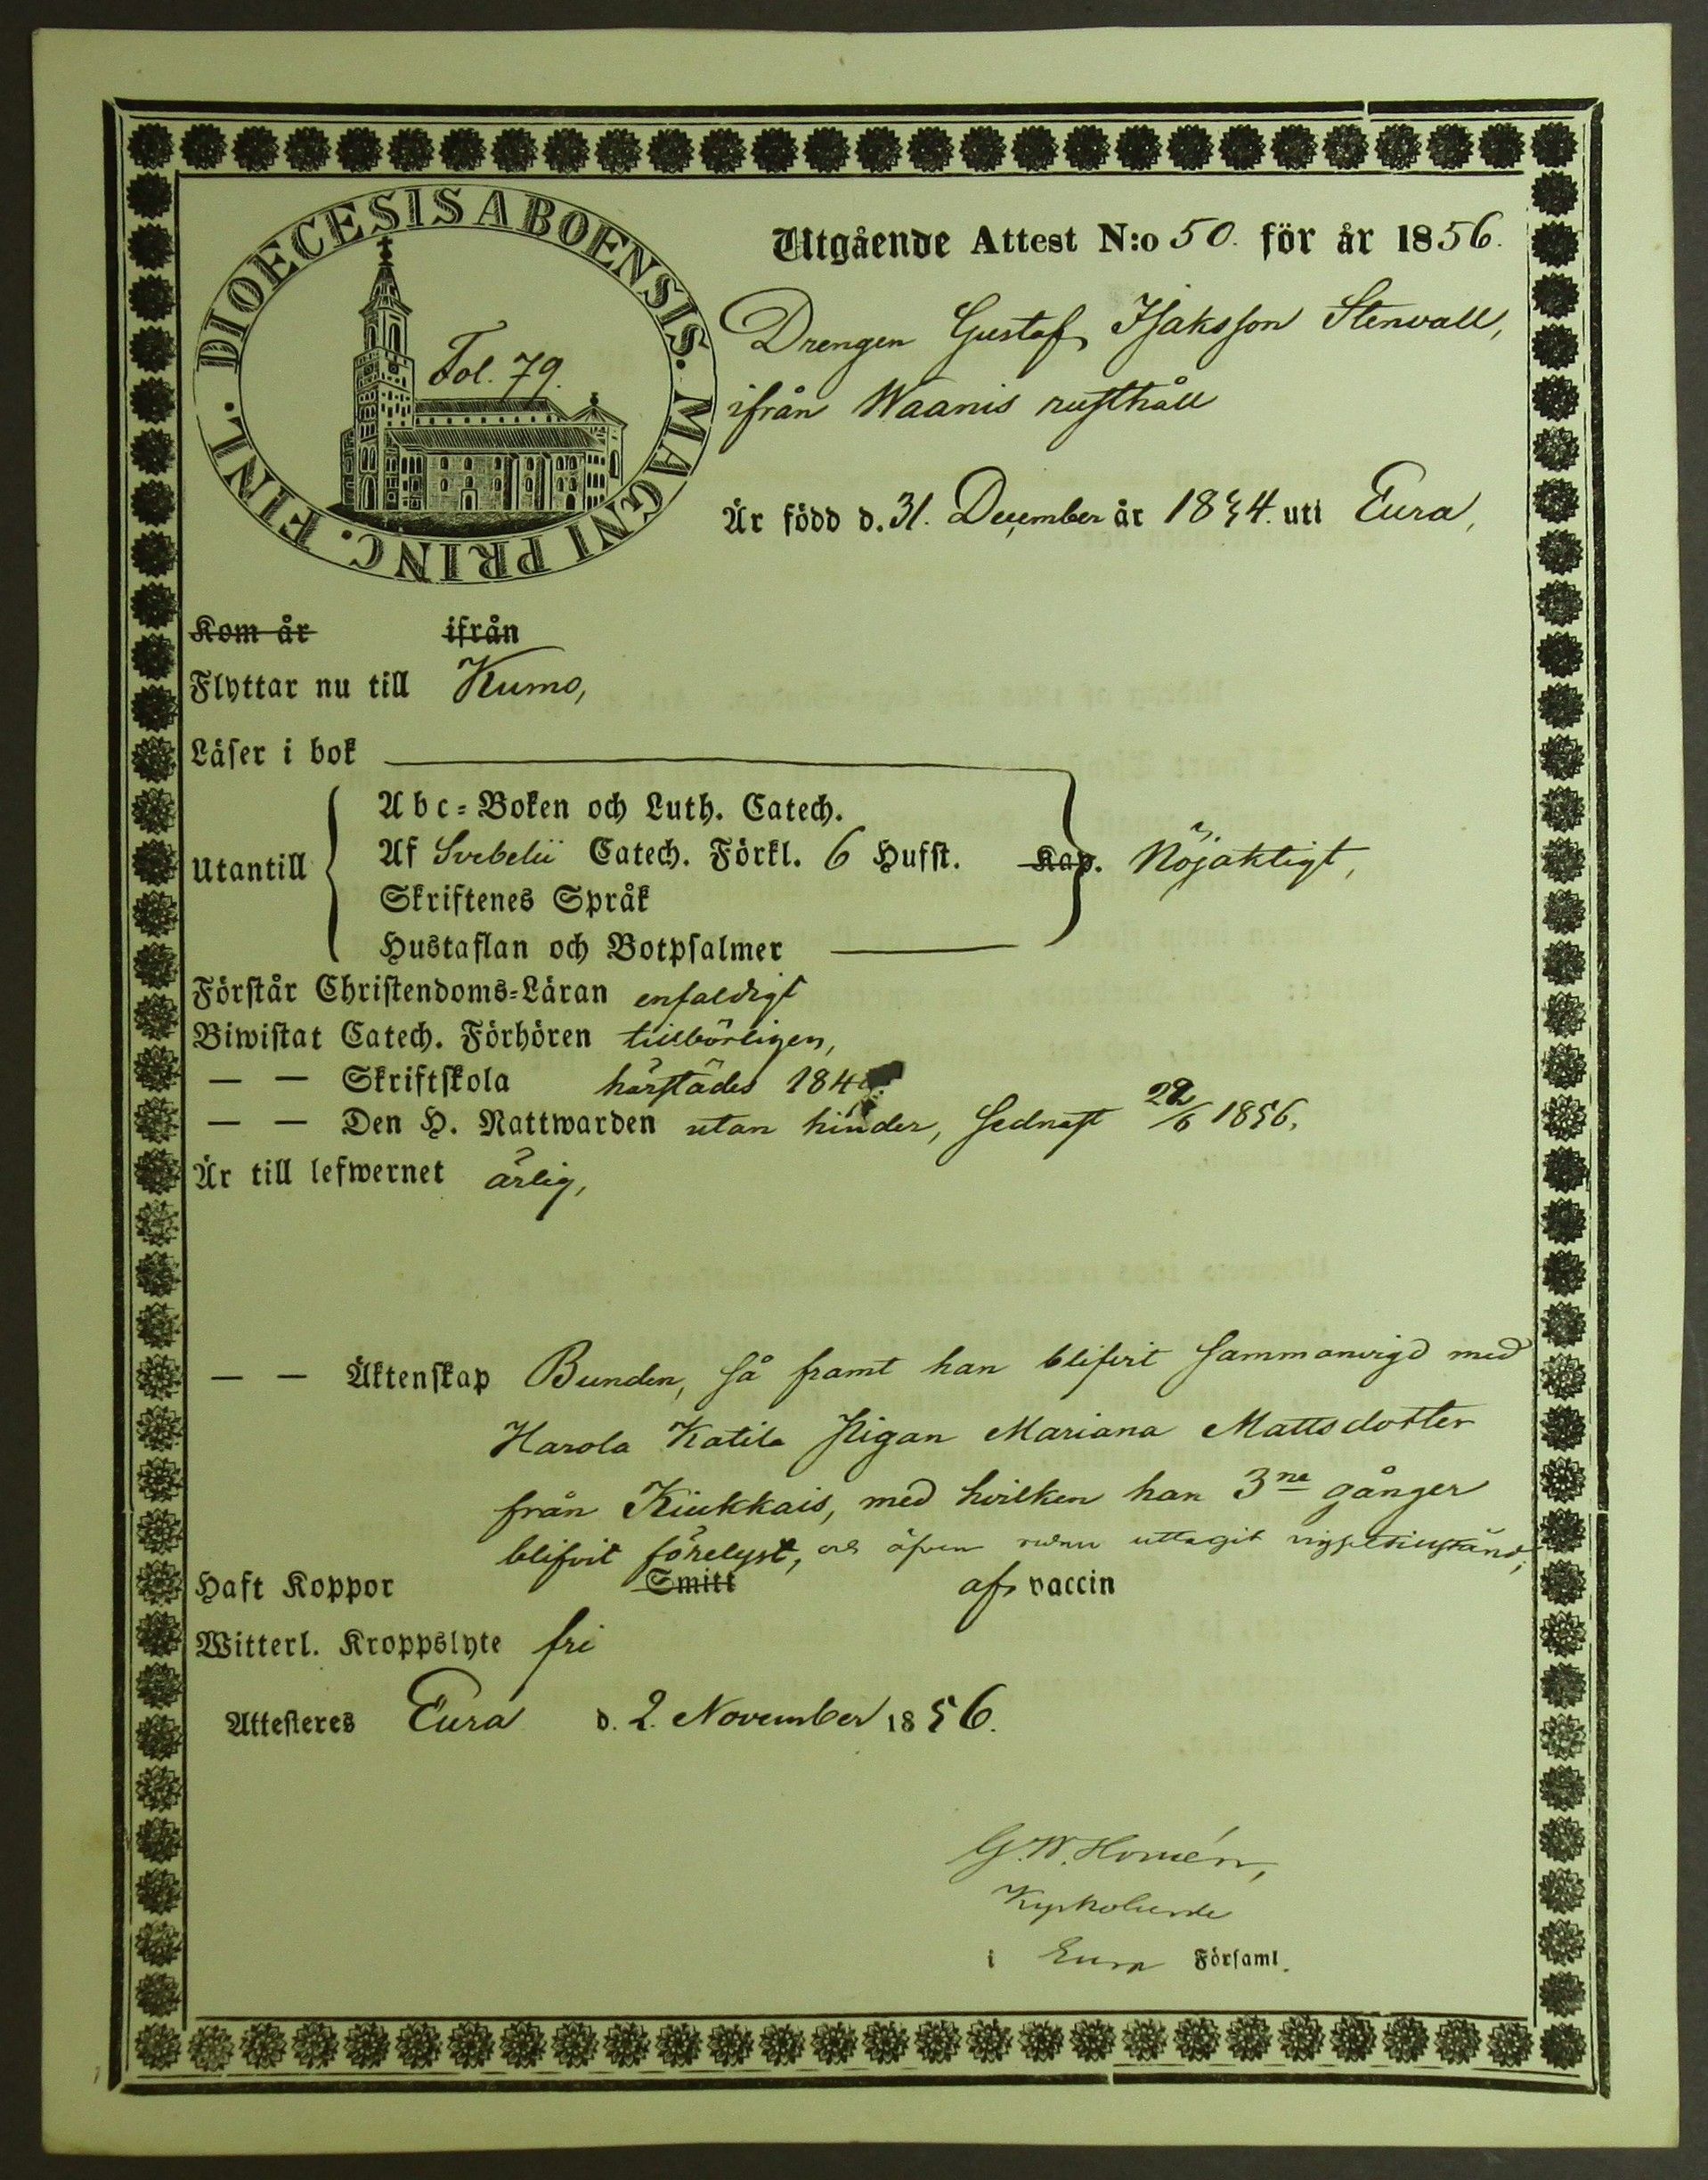 DIOECESIS ABOENSIS. MAGNI PRINC. FINL.
Fol. 79.
Utgående Attest N:o 50. för år 1856.
Drengen Gustaf Isaksson Stenvall,
ifrån Waanis rusthåll
Är född d. 31. December år 1834. uti Eura,
Kom år ifrån
Flyttar nu till Kumo,
Läser i bok
Utantill
Abc-Boken och Luth. Catech.
Af Svebelii Catech. Förkl. 6 Hufst. Kap. Nöjaktigt,
Skriftenes Språk
Hustaflan och Botpsalmer
Förstår Christendoms-Läran enfaldigt
Biwistat Catech. Förhören tillbörligen,
— — Skriftskola härstädes 184
— — Den H. Nattwarden utan hinder, sednast 22/6 1856.
Är till lefwernet ärlig,
— — Äktenskap Bunden, så framt han blifvit sammanvigd med
Harola Katila Pigan Mariana Mattsdotter
från Kiukkais, med hvilken han 3ne gånger
blifvit förelyst, och äfven uttagit
Haft Koppor Smitt af vaccin
Witterl. Kroppslyte fri
Attesteres Eura d. 2. November 1856.
G. W. Homén,
Kyrkoherde
i Eura Församl.